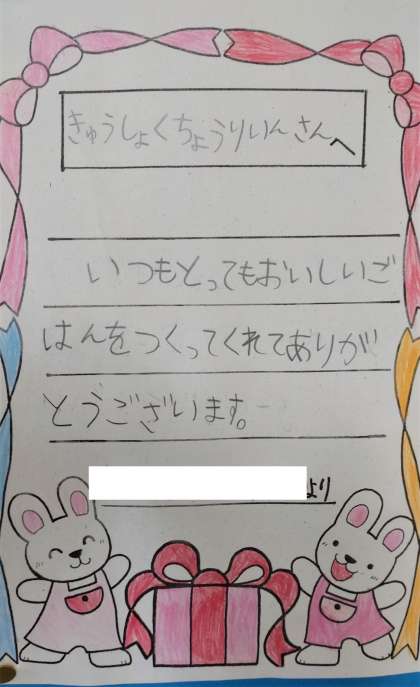 きゅうしょくちょうりいんさんへ
いつもとってもおいしいご
はんをつくってくれてありが
とうございます。
より